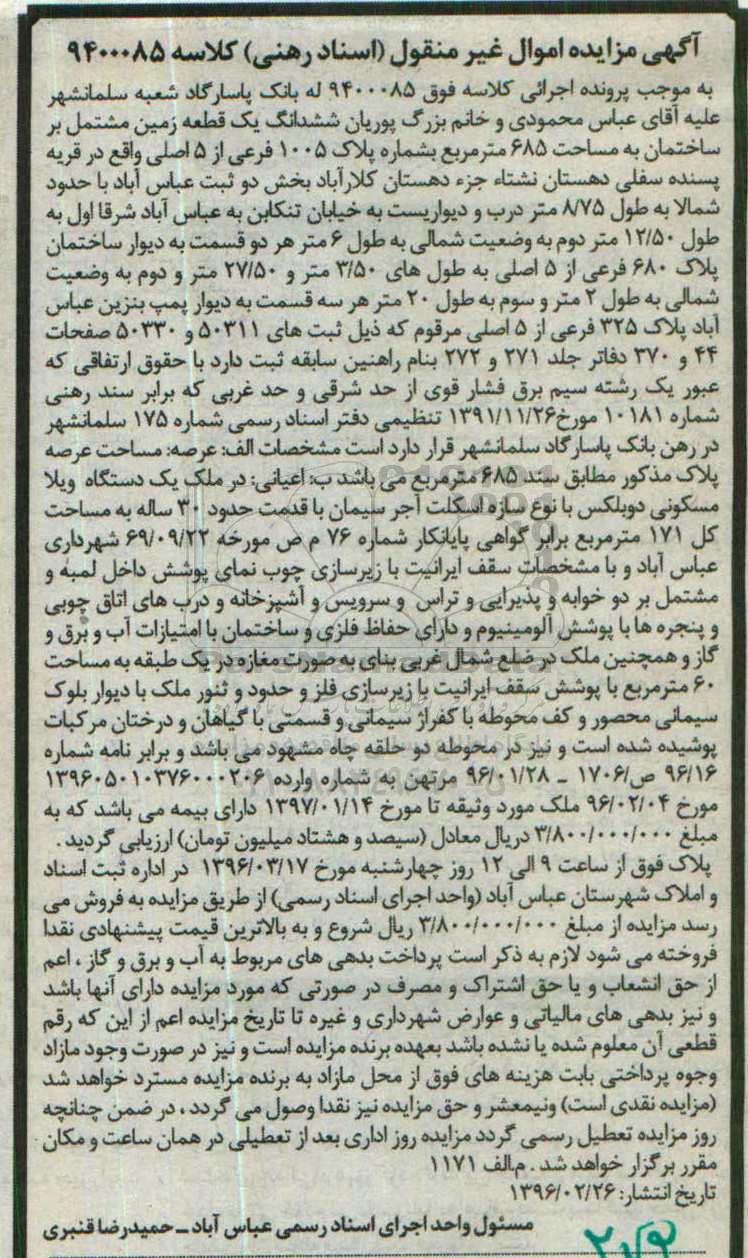 آگهی مزایده اموال غیر منقول (اسناد رهنی) کلاسه ۹۴۰۰۰۸۵
به موجب پرونده اجرائی کلاسه فوق ۹۴۰۰۰۸۵ له بانک پاسارگاد شعبه سلمانشهر
علیه آقای عباس محمودی و خانم بزرگ پوریان ششدانگ یک قطعه زمین مشتمل بر
ساختمان به مساحت ۶۸۵ مترمربع بشماره پلاک ۱۰۰۵ فرعی از ۵ اصلی واقع در قریه
پسنده سفلی دهستان نشتاء جزء دهستان کلارآباد بخش دو ثبت عباس آباد با حدود
شمالا به طول ۸/۷۵ متر درب و دیواریست به خیابان تنکابن به عباس آباد شرقا اول به
طول ۱۲/۵۰ متر دوم به وضعیت شمالی به طول ۶ متر هر دو قسمت به دیوار ساختمان
پلاک ۶۸۰ فرعی از ۵ اصلی به طول های ۳/۵۰ متر و ۲۷/۵۰ متر و دوم به وضعیت
شمالی به طول ۲ متر و سوم به طول ۲۰ متر هر سه قسمت به دیوار پمپ بنزین عباس
آباد پلاک ۳۲۵ فرعی از ۵ اصلی مرقوم که ذیل ثبت های ۵۰۳۱۱ و ۵۰۳۳۰ صفحات
۴۴ و ۳۷۰ دفاتر جلد ۲۷۱ و ۲۷۲ بنام راهنین سابقه ثبت دارد با حقوق ارتفاقی که
عبور یک رشته سیم برق فشار قوی از حد شرقی و حد غربی که برابر سند رهنی
شماره ۱۰۱۸۱ مورخ۱۳۹۱/۱۱/۲۶ تنظیمی دفتر اسناد رسمی شماره ۱۷۵ سلمانشهر
در رهن بانک پاسارگاد سلمانشهر قرار دارد است مشخصات الف: عرصه: مساحت عرصه
پلاک مذکور مطابق سند ۶۸۵ مترمربع می باشد ب: اعیانی: در ملک یک دستگاه ویلا
مسکونی دوبلکس با نوع سازه اسکلت آجر سیمان با قدمت حدود ۳۰ ساله به مساحت
کل ۱۷۱ مترمربع برابر گواهی پایانکار شماره ۷۶ م ص مورخه ۶۹/۰۹/۲۲ شهرداری
عباس آباد و با مشخصات سقف ایرانیت با زیرسازی چوب نمای پوشش داخل لمبه و
مشتمل بر دو خوابه و پذیرایی و تراس و سرویس و آشپزخانه و درب های اتاق چوبی
و پنجره ها با پوشش آلومینیوم و دارای حفاظ فلزی و ساختمان با امتیازات آب و برق و
گاز و همچنین ملک در ضلع شمال غربی بنای به صورت مغازه در یک طبقه به مساحت
۶۰ مترمربع با پوشش سقف ایرانیت با زیرسازی فلز و حدود و ثنور ملک با دیوار بلوک
سیمانی محصور و کف محوطه با کفراژ سیمانی و قسمتی با گیاهان و درختان مرکبات
پوشیده شده است و نیز در محوطه دو حلقه چاه مشهود می باشد و برابر نامه شماره
۹۶/۱۶ ص/۱۷۰۶ - ۹۶/۰۱/۲۸ مرتهن به شماره وارده ۱۳۹۶۰۵۰۱۰۳۷۶۰۰۰۲۰۶
مورخ ۹۶/۰۲/۰۴ ملک مورد وثیقه تا مورخ ۱۳۹۷/۰۱/۱۴ دارای بیمه می باشد که به
مبلغ ۳/۸۰۰/۰۰۰/۰۰۰ دریال معادل (سیصد و هشتاد میلیون تومان) ارزیابی گردید .
پلاک فوق از ساعت ۹ الی ۱۲ روز چهارشنبه مورخ ۱۳۹۶/۰۳/۱۷ در اداره ثبت اسناد
و املاک شهرستان عباس آباد (واحد اجرای اسناد رسمی) از طریق مزایده به فروش می
رسد مزایده از مبلغ ۳/۸۰۰/۰۰۰/۰۰۰ ریال شروع و به بالاترین قیمت پیشنهادی نقدا
فروخته می شود لازم به ذکر است پرداخت بدهی های مربوط به آب و برق و گاز ، اعم
از حق انشعاب و یا حق اشتراک و مصرف در صورتی که مورد مزایده دارای آنها باشد
و نیز بدهی های مالیاتی و عوارض شهرداری و غیره تا تاریخ مزایده اعم از این که رقم
قطعی آن معلوم شده یا نشده باشد بعهده برنده مزایده است و نیز در صورت وجود مازاد
وجوه پرداختی بابت هزینه های فوق از محل مازاد به برنده مزایده مسترد خواهد شد
(مزایده نقدی است) ونیمعشر و حق مزایده نیز نقدا وصول می گردد ، در ضمن چنانچه
روز مزایده تعطیل رسمی گردد مزایده روز اداری بعد از تعطیلی در همان ساعت و مکان
مقرر برگزار خواهد شد . م.الف ۱۱۷۱
تاریخ انتشار: ۱۳۹۶/۰۲/۲۶
مسئول واحد اجرای اسناد رسمی عباس آباد ـ حمیدرضا قنبری